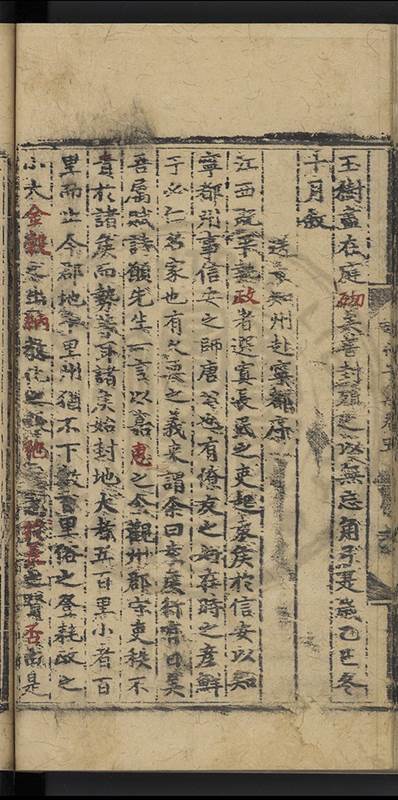 玉樹盍在庭砌矣善封殖之以無忘角弓是歲乙巳冬
十月敘
送袁知州赴寧都序
江西孤平執政者選賓長民之吏起袁矦於信安以知
寧都州事信安之師唐有僚友之在時之產鮮
于必仁名家也有久要之義來謂余曰袁矦行有日矣
吾屬賦詩願先生一言以嘉惠之今觀州郡守吏秩不
貴於諸矦而勢等耳諸矦始封地大者五百里小者百
里而止今郡地千里州猶不下數百里俗之登耗政之
小大金穀之出納教化之之賢否尚是